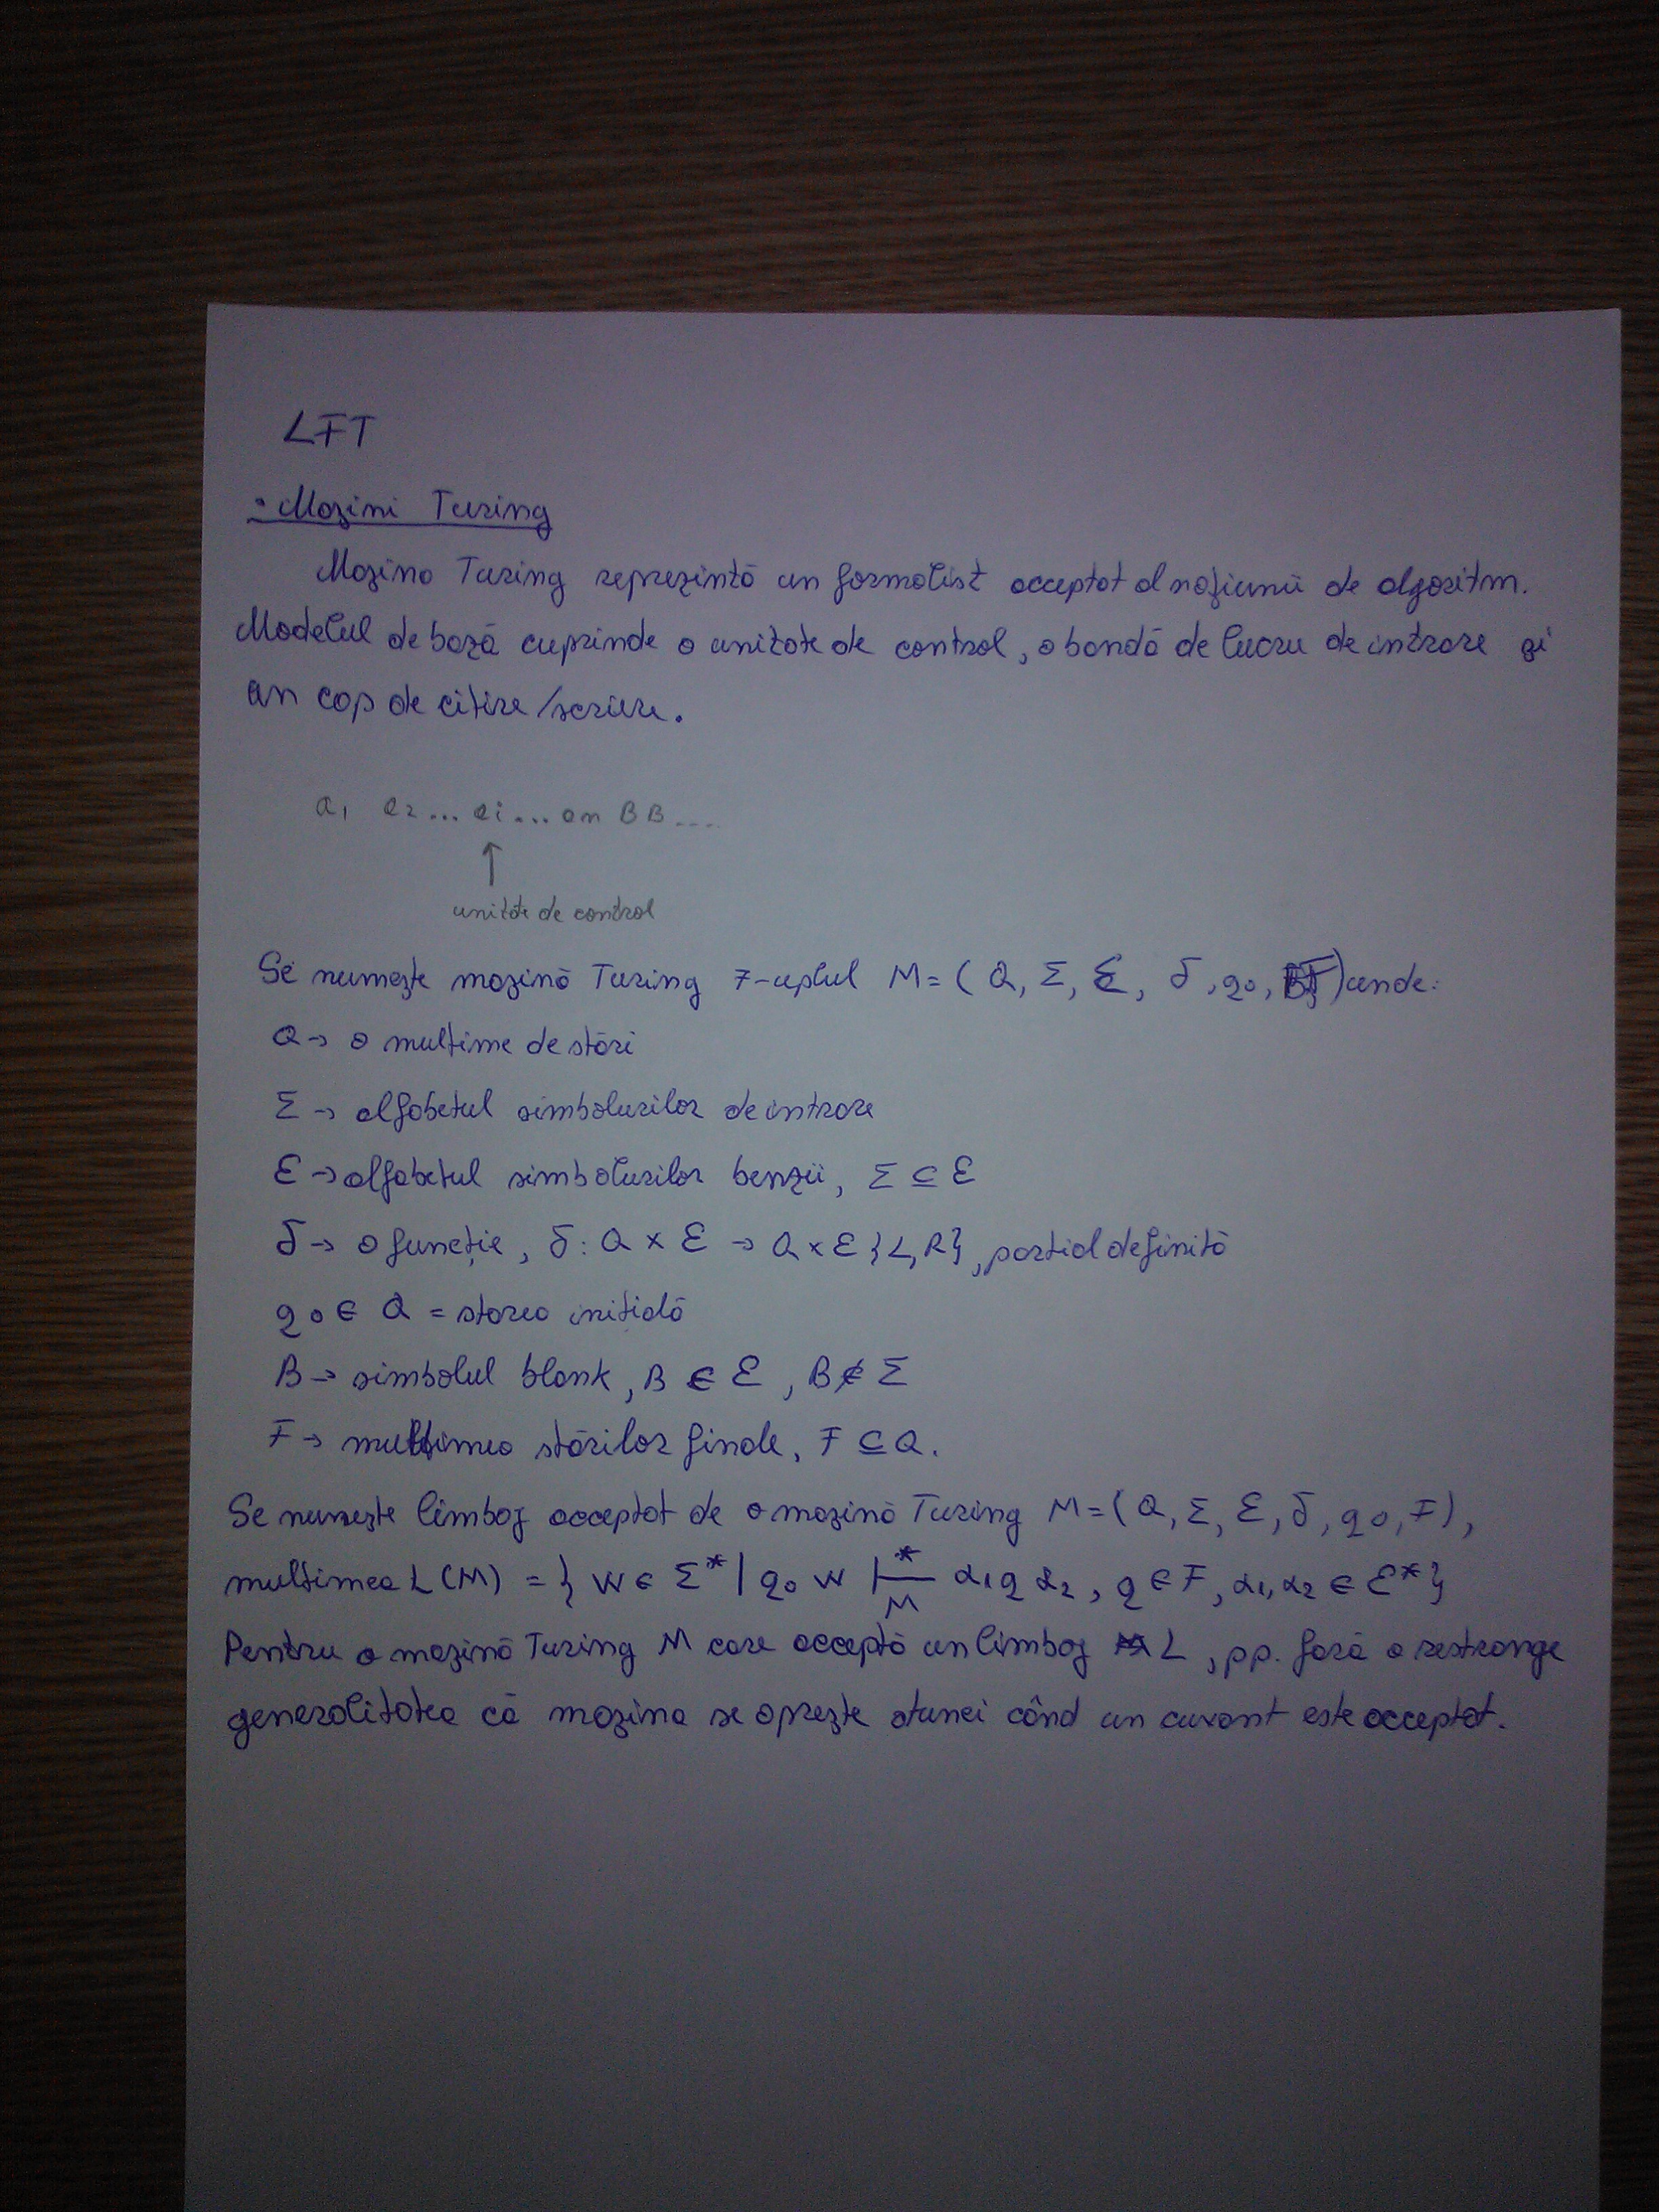 LFT
• Mașini Turing
Mașina Turing reprezintă un formalist acceptat al noțiunii de algoritm.
Modelul de bază cuprinde o unitate de control, o bandă de lucru de intrare și
un cap de citire/scriere.
a1 a2 ... ai ... an B B ....
↑
unitate de control
Se numește mașină Turing 7-uplul M = ( Q, Σ, Ɛ, δ, q0, B, F ) unde:
Q → o multime de stări
Σ → alfabetul simbolurilor de intrare
Ɛ → alfabetul simbolurilor benzii, Σ ⊆ Ɛ
δ → o funcție, δ : Q × Ɛ → Q × Ɛ {L, R}, partial definită
q0 ∈ Q = starea initială
B → simbolul blank, B ∈ Ɛ, B ∉ Σ
F → multimea stărilor finale, F ⊆ Q.
Se numește limbaj acceptat de o mașină Turing M = ( Q, Σ, Ɛ, δ, q0, F ),
multimea L (M) = { w ∈ Σ* | q0 w |—*M α1 q α2, q ∈ F, α1, α2 ∈ Ɛ* }
Pentru o mașină Turing M care acceptă un limbaj L, pp. fară a restrange
generalitatea că mașina se oprește atunci când un cuvant este acceptat.